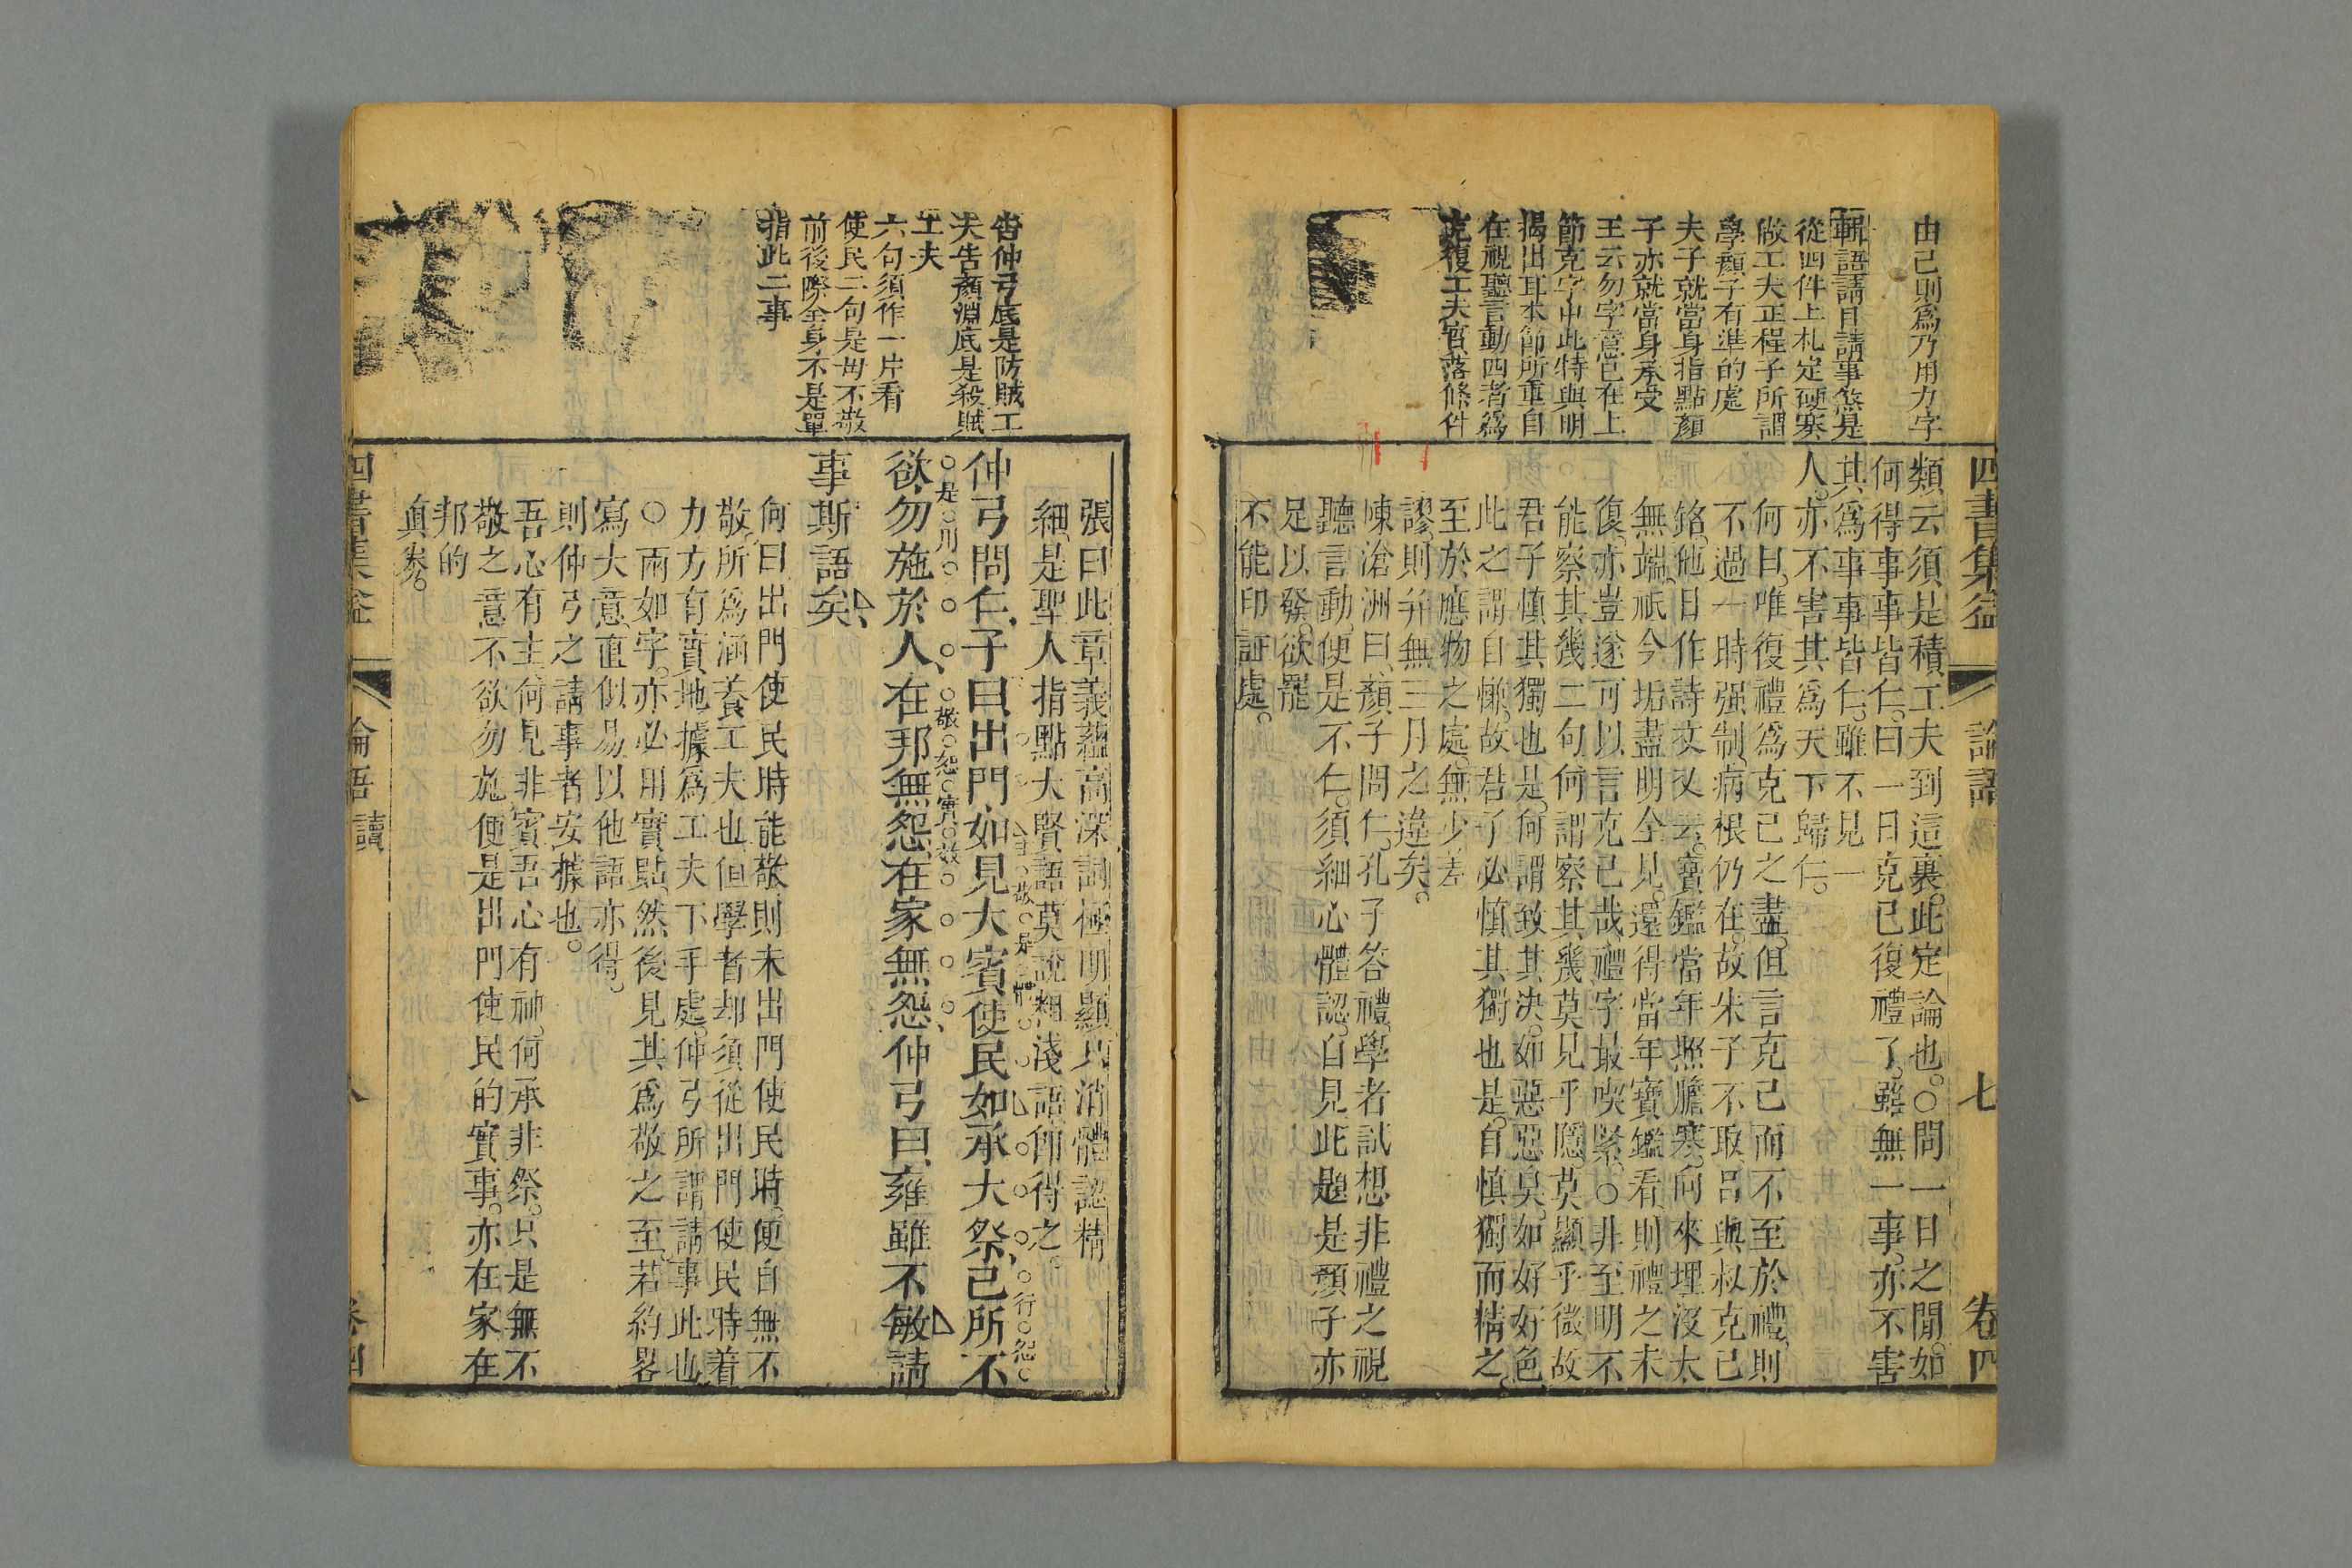 由己則爲乃用力字
輯語請目請事煞是
從四件上札定硬寨
做工夫正程子所謂
學顏子有準的處
夫子就當身指點顏
子亦就當身承受
王云勿字意已在上
節克字中此特與明
揭出耳本節所重自
在視聽言動四者爲
克復工夫實落條件
四書集益
論語
七
卷四
類云須是積工夫到這裏。此定論也。○問一日之間。如
何得事事皆仁。曰一日克己復禮了。雖無一事。亦不害
其爲事事皆仁。雖不見一
人。亦不害其爲天下歸仁。
何曰。唯復禮爲克己之盡。但言克己而不至於禮。則
不過一時强制。病根仍在。故朱子不取。呂與叔克己
銘。他日作詩文又云。寶鑑當年照膽寒。向來埋沒太
無端。祇今垢盡明全見。還得當年寶鑑看。則禮之未
復。亦豈遂可以言克己哉。禮字最喫緊。○非至明不
能察其幾二句。何謂察其幾。莫見乎隱。莫顯乎微。故
君子慎其獨也是。何謂致其決。如惡惡臭。如好好色
此之謂自慊。故君子必慎其獨也是。自慎獨而精之。
至於應物之處。無少差
謬。則幷無三月之違矣。
陳滄洲曰。顏子問仁。孔子答禮。學者試想非禮之視
聽言動。便是不仁。須細心體認。自見此題是顏子亦
足以發。欲罷
不能印証處。
告仲弓底是防賊工
夫告顏淵底是殺賊
工夫
六句須作一片看
使民二句是毋不敬
前後際全身不是單
指此二事
張曰此章義蘊高深。詞極明顯。只消體認精
細。是聖人指點大賢語。莫說粗淺語。節得之。
仲弓問仁。子曰。出門如見大賓。使民如承大祭。己所不
欲。勿施於人。在邦無怨。在家無怨。仲弓曰。雍雖不敏。請
事斯語矣。
何曰出門使民時能敬。則未出門使民時。便自無不
敬。所爲涵養工夫也。但學者却須從出門使民時着
力。方有實地據爲工夫下手處。仲弓所謂請事此也
○兩如字。亦必用實點。然後見其爲敬之至。若約畧
寫大意。直似易以他語亦得。
則仲弓之請事者安據也。
吾心有主。何見非賓。吾心有神。何承非祭。只是無不
敬之意。不欲勿施。便是出門使民的實事。亦在家在
邦的
眞卷。
四書集益
論語 讀
八
卷四